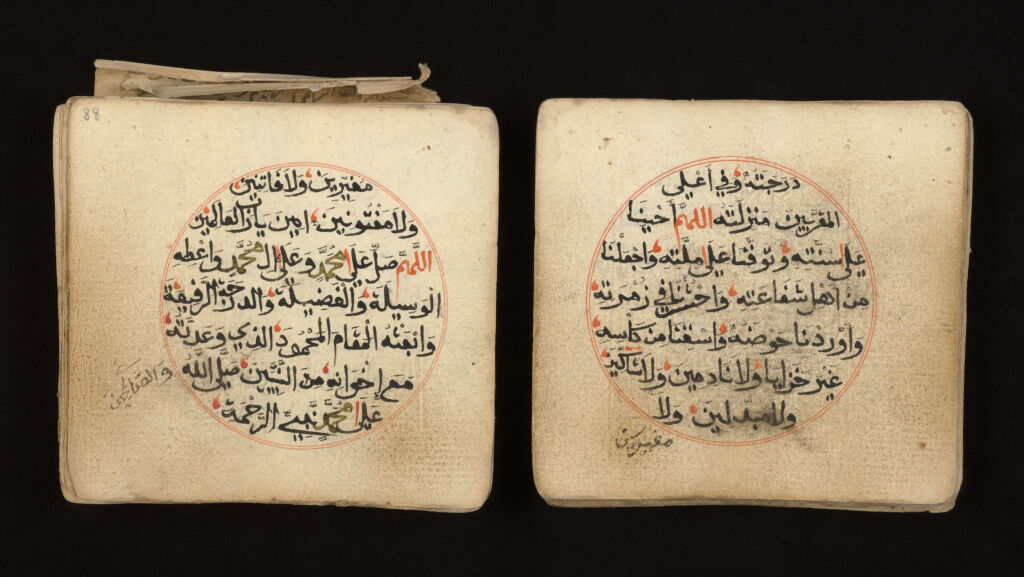 درجته وفي أعلى
المقربين منزلته اللهم أحينا
على سنته وتوفنا على ملته واجعلنا
من أهل شفاعته واحشرنا في زمرته
وأوردنا حوضه واسقنا من كأسه
غير خزايا ولا نادمين ولا شاكين
ولا مبدلين ولا
مغيرين
88
مغيرين ولا فاتنين
ولا مفتونين امين يا رب العالمين
اللهم صل على محمد وعلى ال محمد واعطه
الوسيلة والفضيلة والدرجة الرفيعة
وابعثه المقام المحمود الذي وعدته
مع إخوانه من النبيين صلى الله
على محمد نبي الرحمة
والصالحين